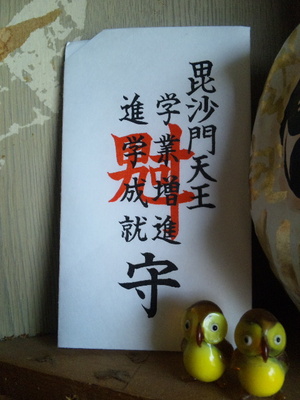 毘沙門天王
学業増進
進学成就
守